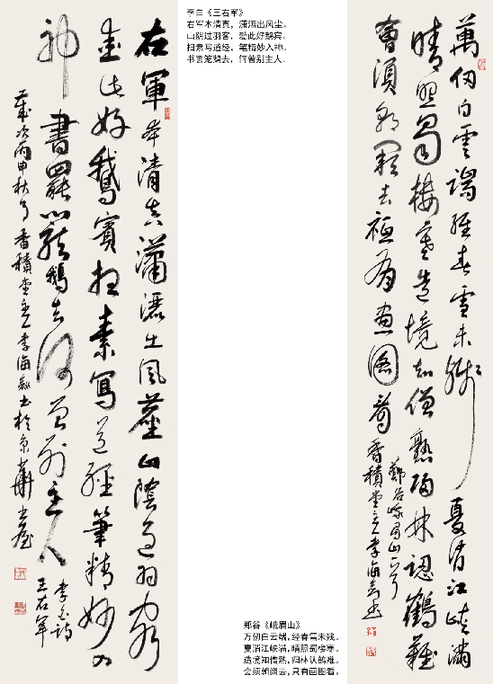 李白《王右军》
右军本清真，潇洒出风尘。
山阴过羽客，爱此好鹅宾。
扫素写道经，笔精妙入神。
书罢笼鹅去，何曾别主人。
右軍本清真瀟灑出風塵山陰過羽客
愛此好鵝賓掃素寫道經筆精妙入
神書罷籠鵝去何曾別主人
李白詩
王右軍
歲次丙申秋月香積堂主李海書於京華
萬仞白雲端經春雪未殘夏消江峽滿
晴照蜀樓寒造境知僧熟歸林認鶴難
會須朝闕去祗有畫圖看
鄭谷峨眉山一首
香積堂主李海書
郑谷《峨眉山》
万仞白云端，经春雪未残。
夏消江峡满，晴照蜀楼寒。
造境知僧熟，归林认鹤难。
会须朝阙去，只有画图看。